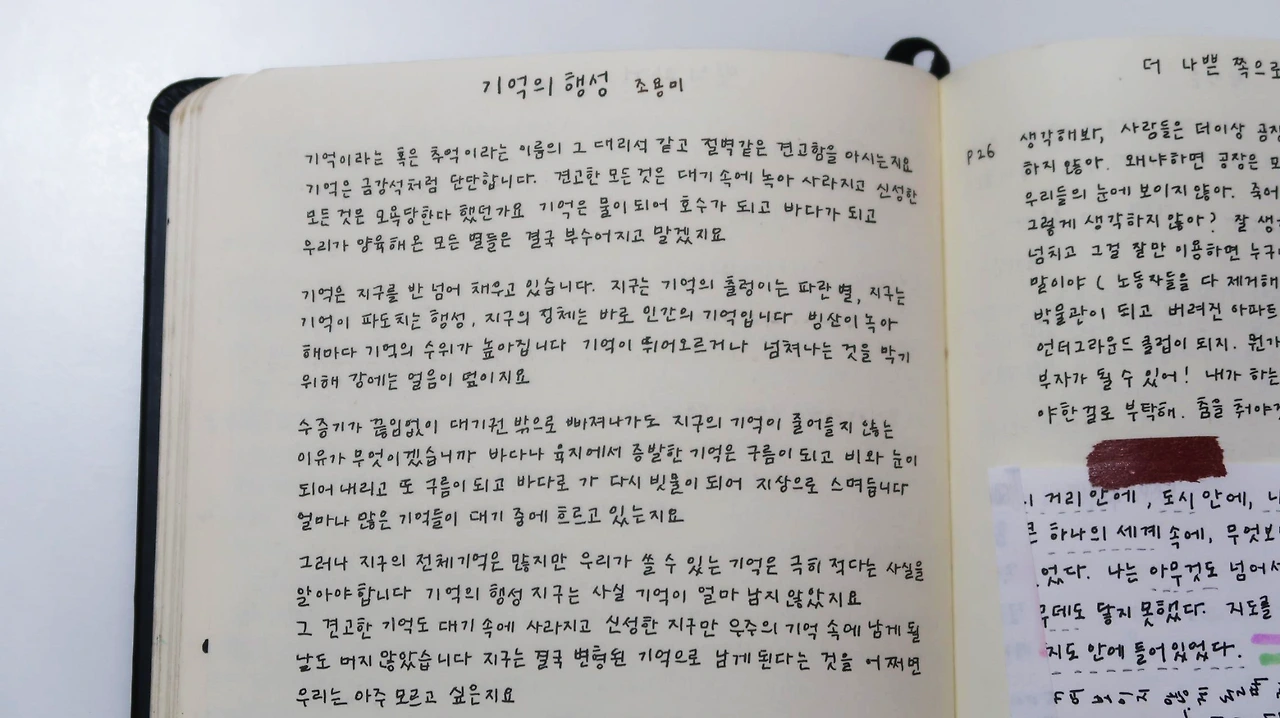 기억의 행성 조용미
기억이라는 혹은 추억이라는 이름의 그 대리석 같고 절벽같은 견고함을 아시는지요
기억은 금강석처럼 단단합니다. 견고한 모든것은 대기 속에 녹아 사라지고 신성한
모든 것은 모욕당한다 했던가요 기억은 물이 되어 호수가 되고 바다가 되고
우리가 양육해 온 모든 별들은 결국 부수어지고 말겠지요
기억은 지구를 반 넘어 채우고 있습니다. 지구는 기억의 출렁이는 파란 별, 지구는
기억이 파도치는 행성, 지구의 정체는 바로 인간의 기억입니다 빙산이 녹아
해마다 기억의 수위가 높아집니다 기억이 뛰어오르거나 넘쳐나는 것을 막기
위해 강에는 얼음이 덮이지요
수증기가 끊임없이 대기권 밖으로 빠져나가도 지구의 기억이 줄어들지 않는
이유가 무엇이겠습니까 바다나 육지에서 증발한 기억은 구름이 되고 비와 눈이
되어 내리고 또 구름이 되고 바다로 가 다시 빗물이 되어 지상으로 스며듭니다
얼마나 많은 기억들이 대기 중에 흐르고 있는지요
그러나 지구의 전체기억은 많지만 우리가 쓸 수 있는 기억은 극히 적다는 사실을
알아야합니다 기억의 행성 지구는 사실 기억이 얼마 남지 않았지요
그 견고한 기억도 대기 속에 사라지고 신성한 지구만 우주의 기억 속에 남게 될
날도 머지 않았습니다 지구는 결국 변형된 기억으로 남게 된다는 것을 어쩌면
우리는 아주 모르고 싶은지요
더 나쁜 쪽으로
p26
생각해봐, 사람들은 더이상 공장
하지 않아. 왜냐하면 공장은 모
우리들의 눈에 보이지 않아. 죽어
그렇게 생각하지 않아? 잘 생
넘치고 그걸 잘만 이용하면 누구
말이야 ( 노동자들을 다 제거해
박물관이 되고 버려진 아파트
언더그라운드 클럽이 되지. 뭔가
부자가 될 수 있어! 내가 하는
야한 걸로 부탁해. 춤을 춰야
거리 안에, 도시 안에,
하나의 세계 속에, 무엇보
었다. 나는 아무것도 넘어서
무데도 닿지 못했다. 지도를
지도 안에 들어있었다.